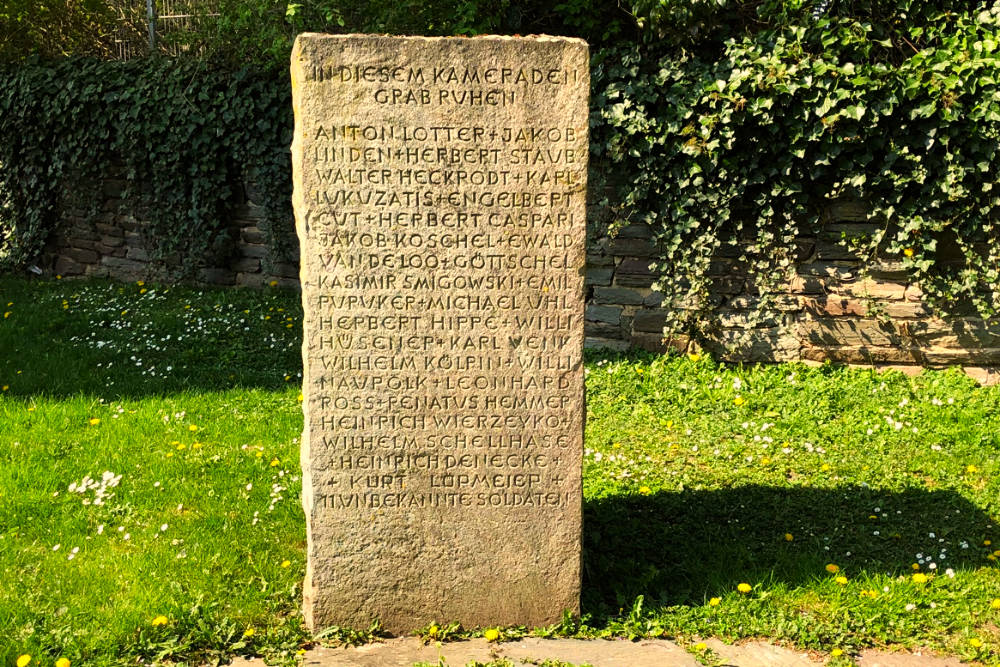 IN DIESEM KAMERADEN
GRAB RUHEN
ANTON LOTTER + JAKOB
LINDEN + HERBERT STAUB
WALTER HECKRODT + KARL
LUKUZATIS + ENGELBERT
GUT + HERBERT CASPARI
JAKOB KOSCHEL + EWALD
VAN DE LOO + GÖTTSCHEL
KASIMIR SMIGOWSKI + EMIL
PUPUKER + MICHAEL UHL
HERBERT HIPPE + WILLI
HÜSENER + KARL VENK
WILHELM KÖLPIN + WILLI
NAUPOLK + LEONHARD
ROSS + RENATUS HEMMER
HEINRICH WIERZEYKO +
WILHELM SCHELLHASE
+ HEINRICH DENECKE +
+ KURT LÜPMEIER +
11 UNBEKANNTE SOLDATEN